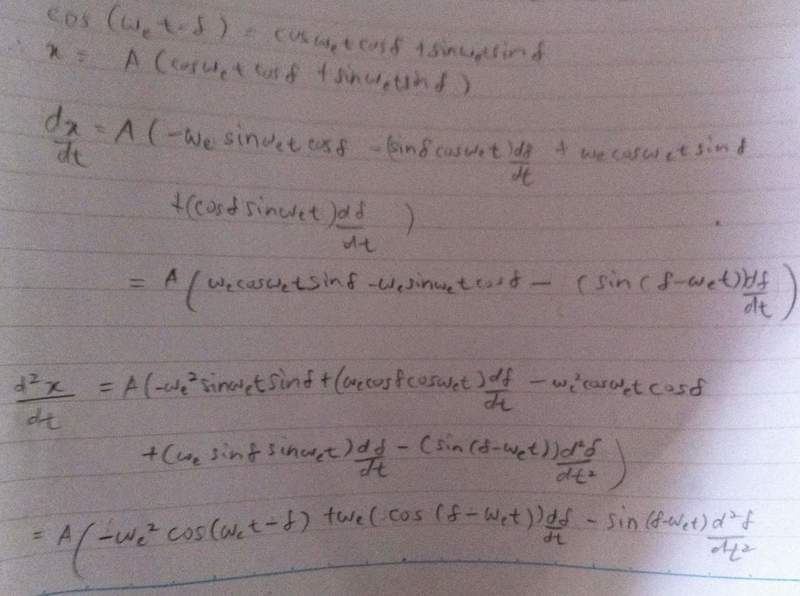 cos (ωet - δ) = cosωet cosδ + sinωet sinδ
∴ x = A (cosωet cosδ + sinωet sinδ)
dx/dt = A (-ωe sinωet cosδ - (sinδ cosωet) dδ/dt + ωe cosωet sinδ
+ (cosδ sinωet) dδ/dt )
= A (ωe cosωet sinδ - ωe sinωet cosδ - (sin(δ-ωet)) dδ/dt )
d²x/dt = A (-ωe² sinωet sinδ + (ωe cosδ cosωet) dδ/dt - ωe² cosωet cosδ
+ (ωe sinδ sinωet) dδ/dt - (sin(δ-ωet)) d²δ/dt² )
= A (-ωe² cos(ωet-δ) + ωe (cos(δ-ωet)) dδ/dt - sin(δ-ωet) d²δ/dt²